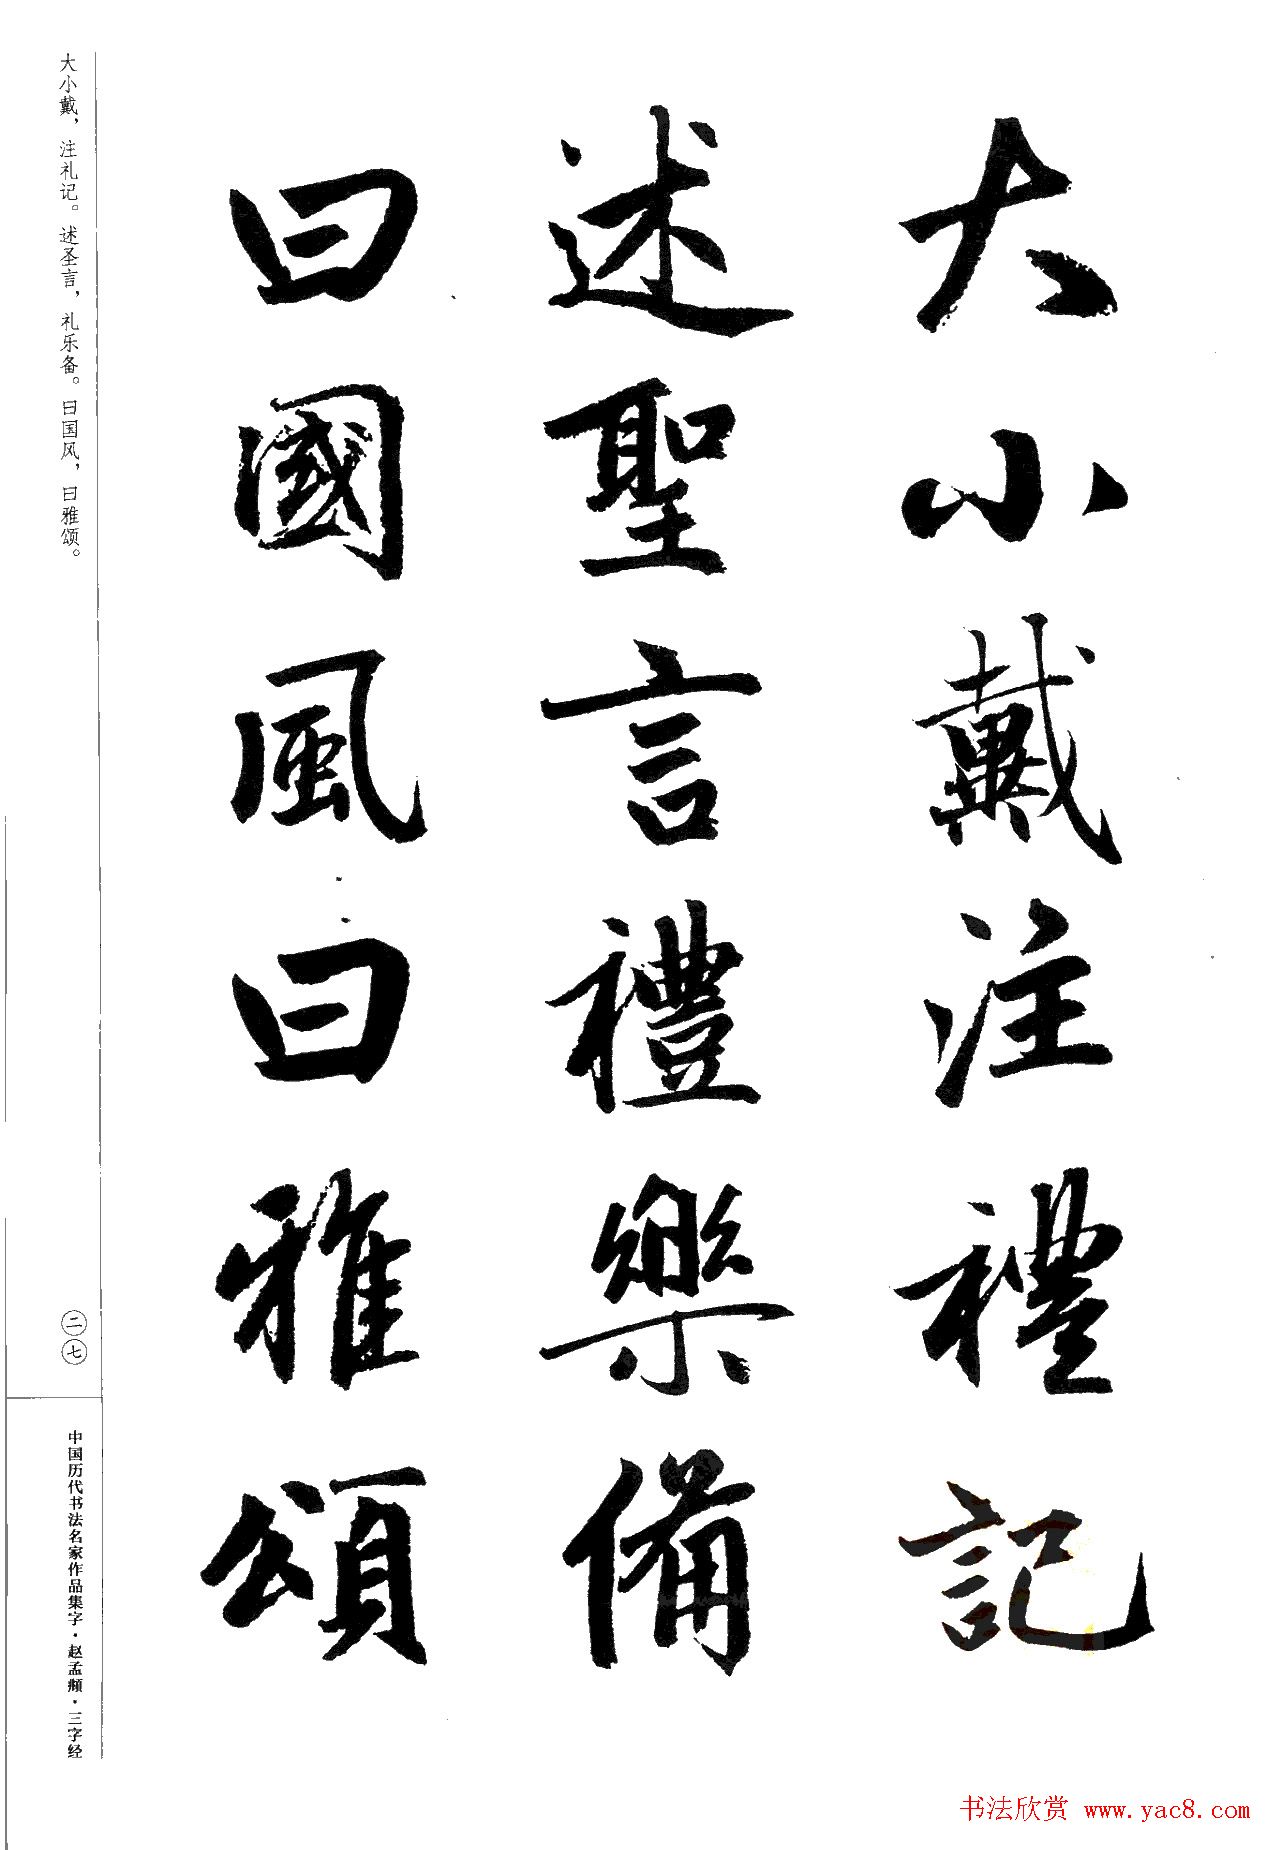 大小戴注禮記
述聖言禮樂備
曰國風曰雅頌
大小戴，注礼记。述圣言，礼乐备。曰国风，曰雅颂。
二七
中国历代书法名家作品集字·赵孟頫·三字经
书法欣赏 www.yac8.com